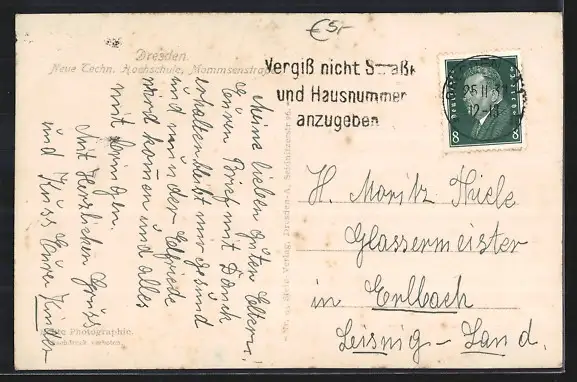 €5,-
Dresden.
Neue Techn. Hochschule, Mommsenstraße
Vergiß nicht Straße
und Hausnummer
anzugeben
25.11.3
8 8
Meine lieben guten Eltern!
Euren Brief mit Dank
erhalten bleibt nur gesund
und wieder Elfriede
wird kommen und alles
mit bringen.
Mit Herzlichen Gruss
und Kuss Eure Kinder
H. Moritz Thiele
Glassermeister
in Erlbach
Leisnig-Land.
Echte Photographie.
Nachdruck verboten.
Verlag, Dresden-A.